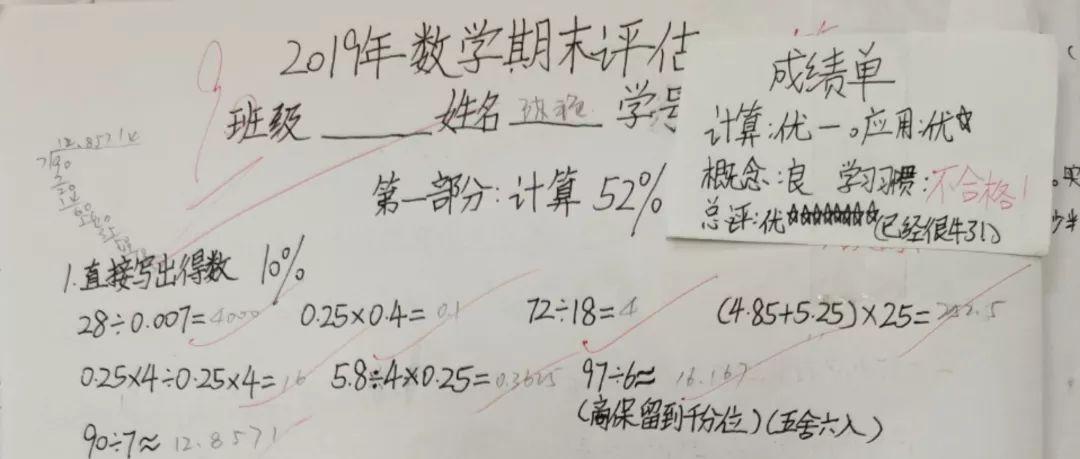 2019年数学期末评估
班级 姓名 学号
第一部分:计算 52%
成绩单
计算:优一。应用:优☆
概念:良 学习习惯:不合格!
总评:优☆☆☆☆☆☆☆☆(已经很牛了!)
1.直接写出得数 10%
28÷0.007=4000 0.25×0.4=0.1 72÷18=4 (4.85+5.25)×25=252.5
0.25×4÷0.25×4=16 5.8÷4×0.25=0.3625 97÷6≈16.167
(商保留到千分位)(五舍六入)
90÷7≈12.8571